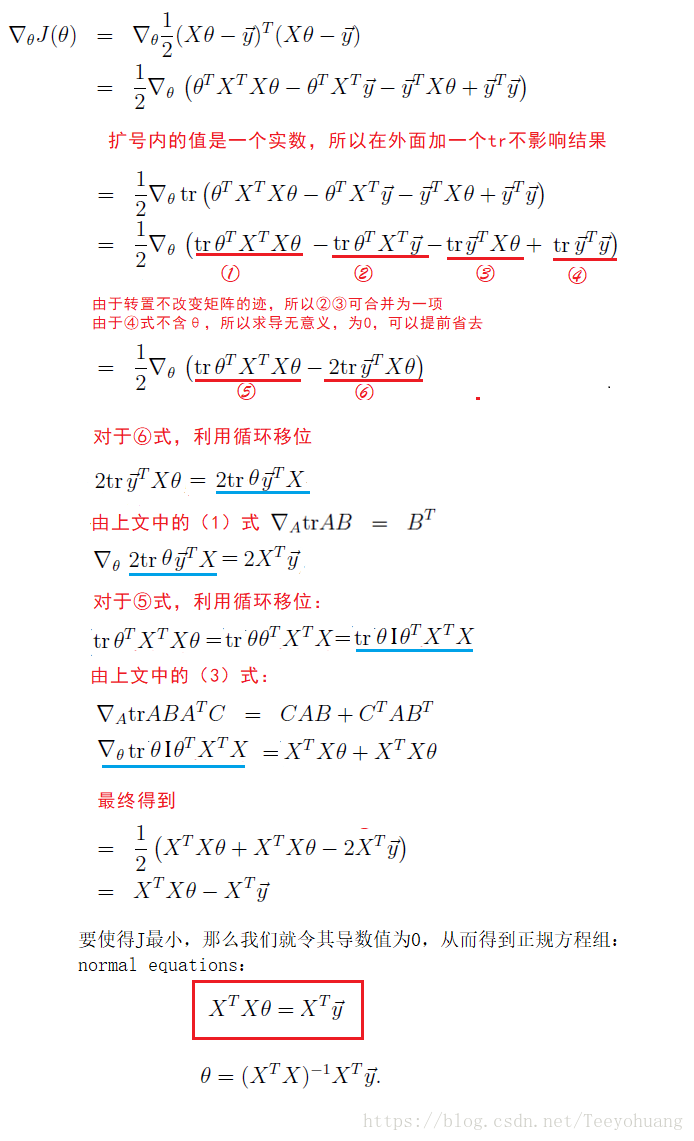 ∇_θ J(θ) = ∇_θ \frac{1}{2}(Xθ − \vec{y})^T(Xθ − \vec{y})
= \frac{1}{2}∇_θ (θ^T X^T Xθ − θ^T X^T \vec{y} − \vec{y}^T Xθ + \vec{y}^T \vec{y})
扩号内的值是一个实数，所以在外面加一个tr不影响结果
= \frac{1}{2}∇_θ tr (θ^T X^T Xθ − θ^T X^T \vec{y} − \vec{y}^T Xθ + \vec{y}^T \vec{y})
= \frac{1}{2}∇_θ (tr θ^T X^T Xθ − tr θ^T X^T \vec{y} − tr \vec{y}^T Xθ + tr \vec{y}^T \vec{y})
① ② ③ ④
由于转置不改变矩阵的迹，所以②③可合并为一项
由于④式不含θ，所以求导无意义，为0，可以提前省去
= \frac{1}{2}∇_θ (tr θ^T X^T Xθ − 2tr \vec{y}^T Xθ)
⑤ ⑥
对于⑥式，利用循环移位
2tr \vec{y}^T Xθ = 2tr θ\vec{y}^T X
由上文中的（1）式 ∇_A trAB = B^T
∇_θ 2tr θ\vec{y}^T X = 2X^T \vec{y}
对于⑤式，利用循环移位：
tr θ^T X^T Xθ = tr θθ^T X^T X = tr θIθ^T X^T X
由上文中的（3）式：
∇_A trABA^T C = CAB + C^T AB^T
∇_θ tr θIθ^T X^T X = X^T Xθ + X^T Xθ
最终得到
= \frac{1}{2}(X^T Xθ + X^T Xθ − 2X^T \vec{y})
= X^T Xθ − X^T \vec{y}
要使得J最小，那么我们就令其导数值为0，从而得到正规方程组：
normal equations：
X^T Xθ = X^T \vec{y}
θ = (X^T X)^{−1} X^T \vec{y}.
https://blog.csdn.net/Teeyohuang